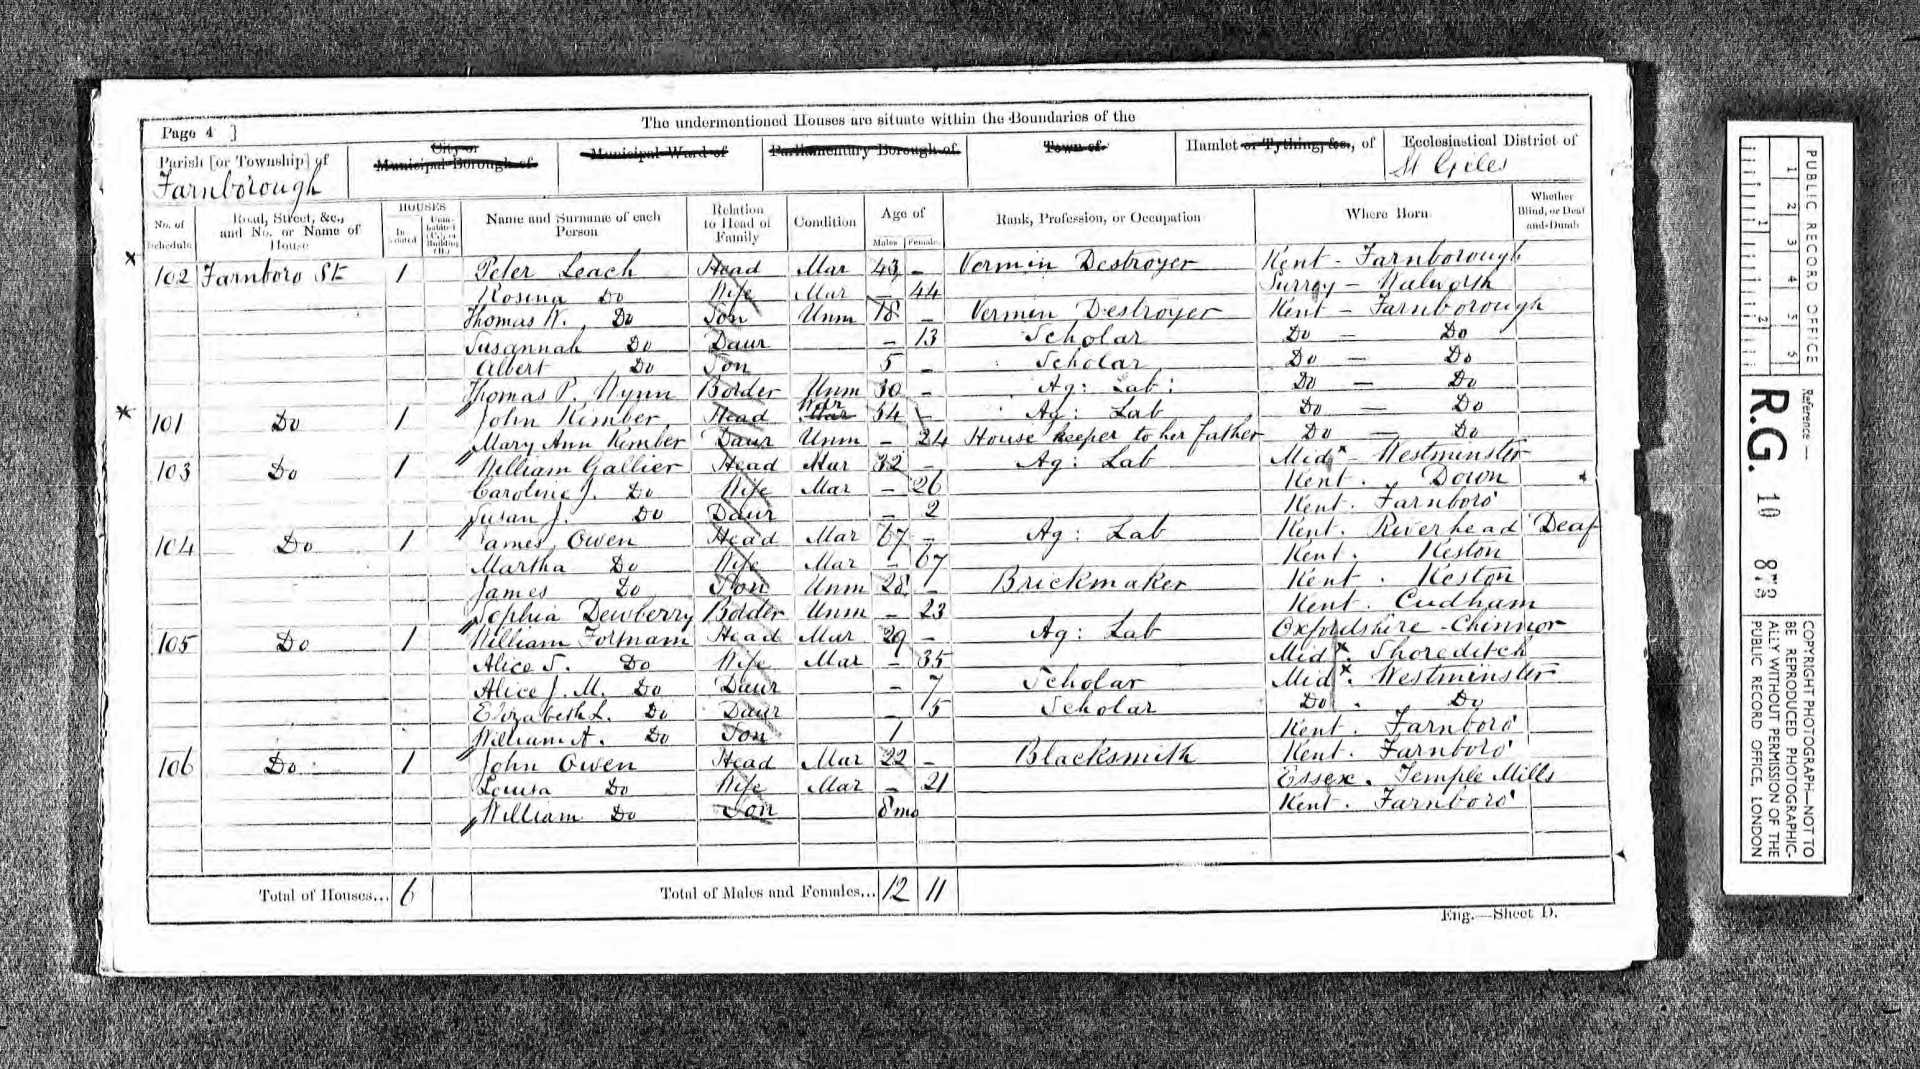 The undermentioned Houses are situate within the Boundaries of the
Page 4 ]
Parish [or Township] of
Farnborough
City or
Municipal Borough of
Municipal Ward of
Parliamentary Borough of
Town of
Hamlet or Tything, &c., of
Ecclesiastical District of
St Giles
No. of Schedule
Road, Street, &c., and No. or Name of House
HOUSES
In-habited
Name and Surname of each Person
Relation to Head of Family
Condition
Age of
Males
Females
Rank, Profession, or Occupation
Where Born
Whether Blind, or Deaf-and-Dumb
102 Farnboro St 1 Peter Leach Head Mar 43 – Vermin Destroyer Kent – Farnborough
Rosina Do Wife Mar – 44 Surrey – Walworth
Thomas W. Do Son Unm 18 – Vermin Destroyer Kent – Farnborough
Susannah Do Daur – 13 Scholar Do – Do
Albert Do Son 5 – Scholar Do – Do
Thomas P. Wynn Border Unm 30 – Ag: Lab: Do – Do
101 Do 1 John Kimber Head Mar 54 – Ag: Lab Do – Do
Mary Ann Kimber Daur Unm – 24 House keeper to her father Do – Do
103 Do 1 William Gallier Head Mar 32 – Ag: Lab Midx Westminster
Caroline J. Do Wife Mar – 26 Kent . Down
Susan J. Do Daur – 2 Kent . Farnboro'
104 Do 1 James Owen Head Mar 67 – Ag: Lab Kent . Riverhead Deaf
Martha Do Wife Mar – 67 Kent . Keston
James Do Son Unm 28 – Brickmaker Kent . Keston
Sophia Dewberry Border Unm – 23 Kent . Cudham
105 Do 1 William Fortnam Head Mar 29 – Ag: Lab Oxfordshire - Chinnor
Alice S. Do Wife Mar – 35 Midx . Shoreditch
Alice J. M. Do Daur – 7 Scholar Midx . Westminster
Elizabeth L. Do Daur – 5 Scholar Do . Do
William A. Do Son 1 Kent . Farnboro'
106 Do 1 John Owen Head Mar 22 – Blacksmith Kent . Farnboro'
Louisa Do Wife Mar – 21 Essex . Temple Mills
William Do Son 8mo Kent . Farnboro'
Total of Houses... 6 Total of Males and Females... 12 11
Eng.—Sheet D.
PUBLIC RECORD OFFICE
1 2 3 4 5 6
1 2
Reference —
R.G. 10 873
COPYRIGHT PHOTOGRAPH—NOT TO
BE REPRODUCED PHOTOGRAPHIC-
ALLY WITHOUT PERMISSION OF THE
PUBLIC RECORD OFFICE, LONDON